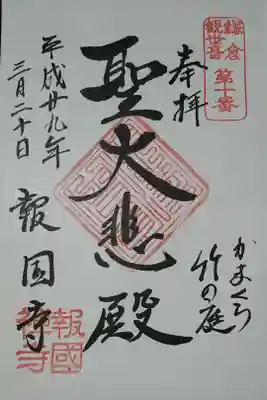 鎌倉
観世音
第十番
奉拝
聖大悲殿
かまくら
竹の庭
平成廿九年
三月二十日
報国寺
報國
禅寺